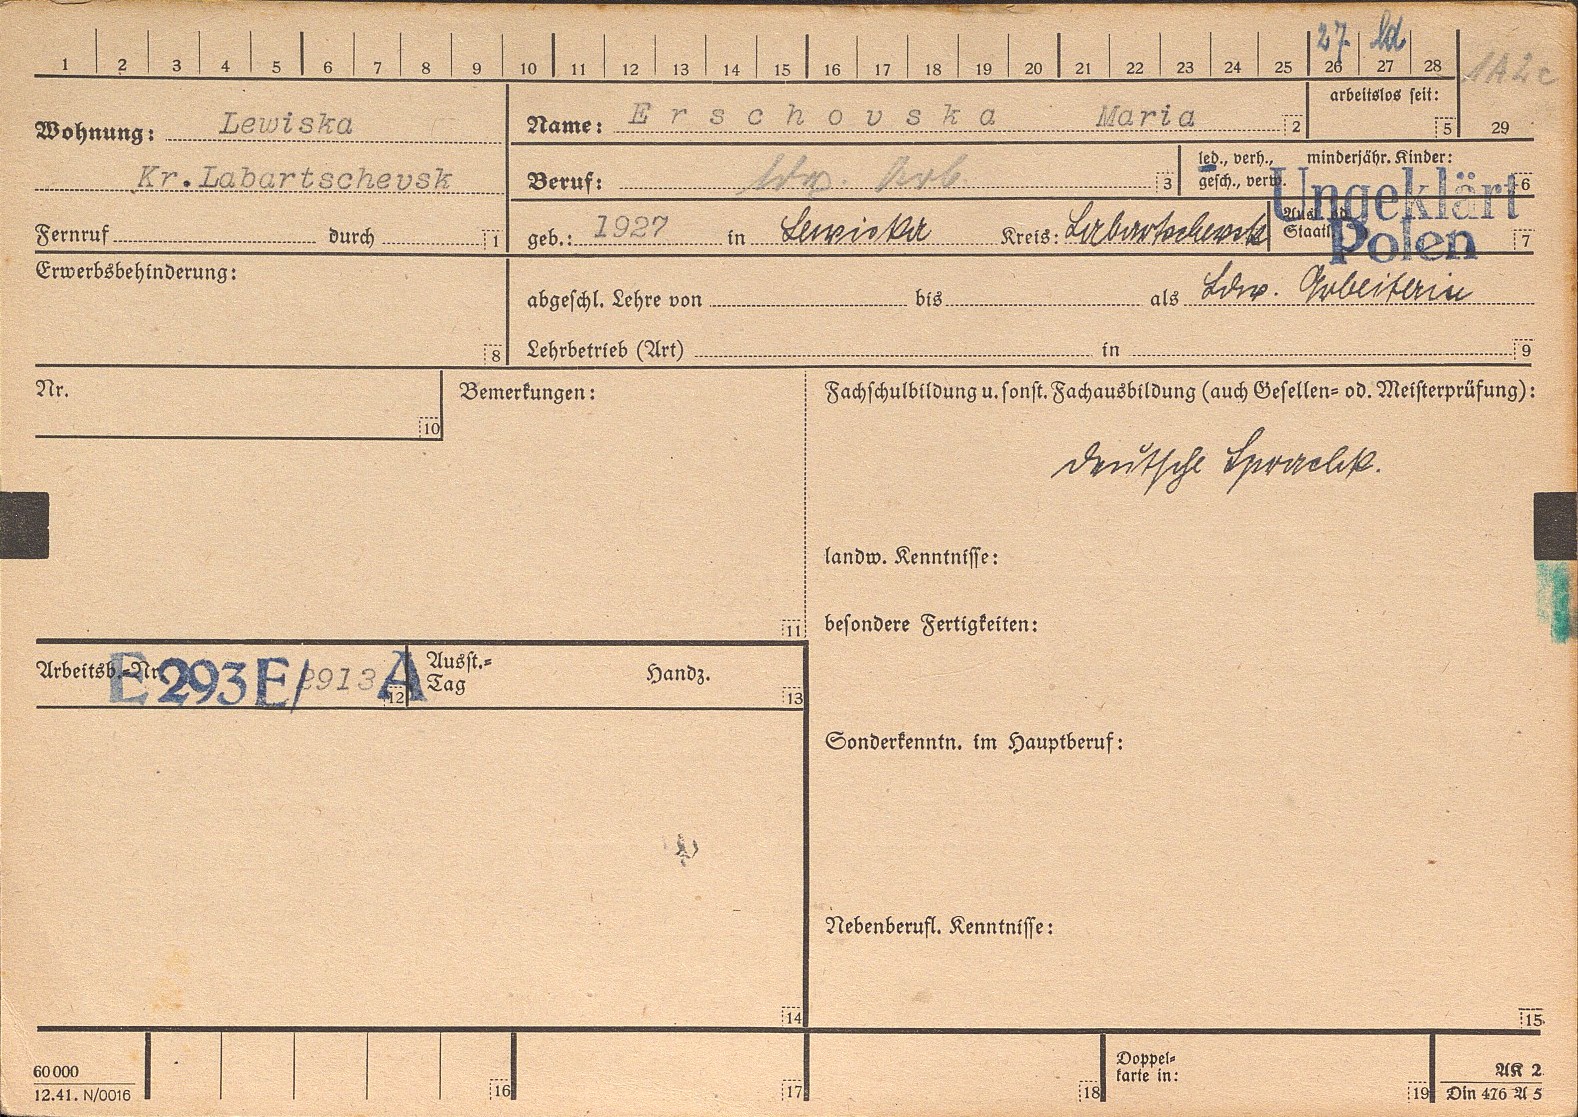 27 ld
1 2 3 4 5 6 7 8 9 10 11 12 13 14 15 16 17 18 19 20 21 22 23 24 25 26 27 28 1A2c
arbeitslos seit:
5 29
Wohnung: Lewiska
Kr.Labartschevsk
Fernruf durch 1
Name: Erschovska Maria 2
Beruf: ldw. Arb. 3
led., verh., minderjähr. Kinder:
gesch., verw. 6
geb.: 1927 in Lewicka Kreis: Labartschewsk
Ausl. od.
Staatl. 7
Ungeklärt
Polen
Erwerbsbehinderung:
8
abgeschl. Lehre von bis als Ldw. Arbeiterin
Lehrbetrieb (Art) in 9
Nr.
10
Bemerkungen:
11
Fachschulbildung u. sonst. Fachausbildung (auch Gesellen= od. Meisterprüfung):
deutsche Sprachk.
landw. Kenntnisse:
besondere Fertigkeiten:
Arbeitsb.=Nr. E293E/2913 A 12
Ausst.=
Tag Handz. 13
Sonderkenntn. im Hauptberuf:
Nebenberufl. Kenntnisse:
14 15
60000
12.41. N/0016
16 17 18
Doppel=
karte in: 19
AK 2
Din 476 A 5